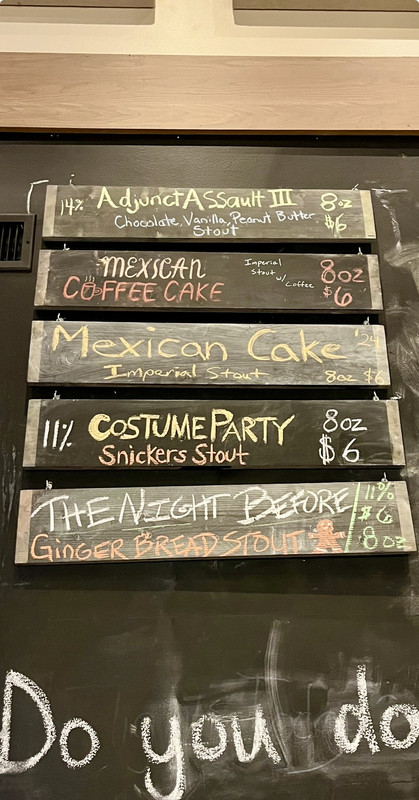 14% Adjunct Assault III 8oz
Chocolate, Vanilla, Peanut Butter $6
Stout
MEXICAN Imperial Stout w/ Coffee 8oz
COFFEE CAKE $6
Mexican Cake '24
Imperial Stout 8oz $6
11% COSTUME PARTY 8oz
Snickers Stout $6
THE NIGHT BEFORE 11%
$6
GINGER BREAD STOUT 8oz
Do you do